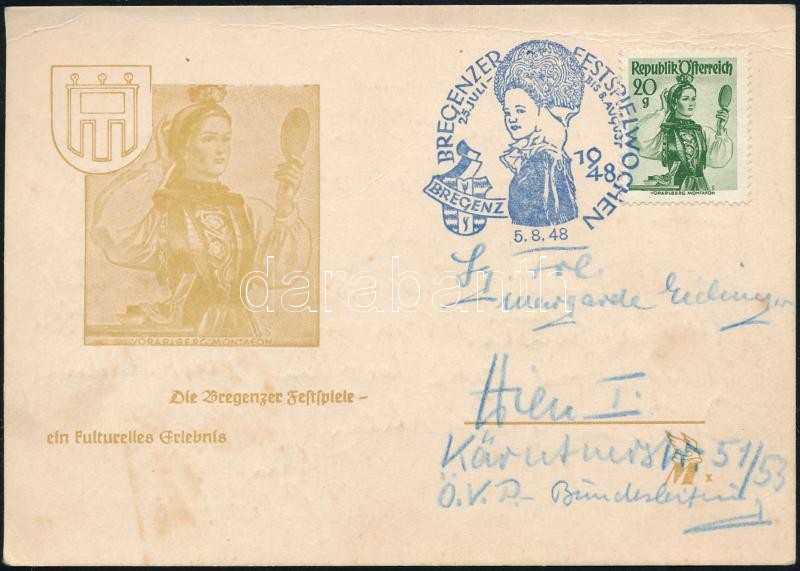 BREGENZER FESTSPIELWOCHEN
25. JULI BIS 8. AUGUST
1948
BREGENZ
5.8.48
Republik Österreich
20
g
VORARLBERG MONTAFON
VORARLBERG MONTAFON
Die Bregenzer Festspiele –
ein kulturelles Erlebnis
Frl.
Wien I.
Kärntnerstr. 51/53
Ö.V.P. – Bundesleitung
M
x
darabanth